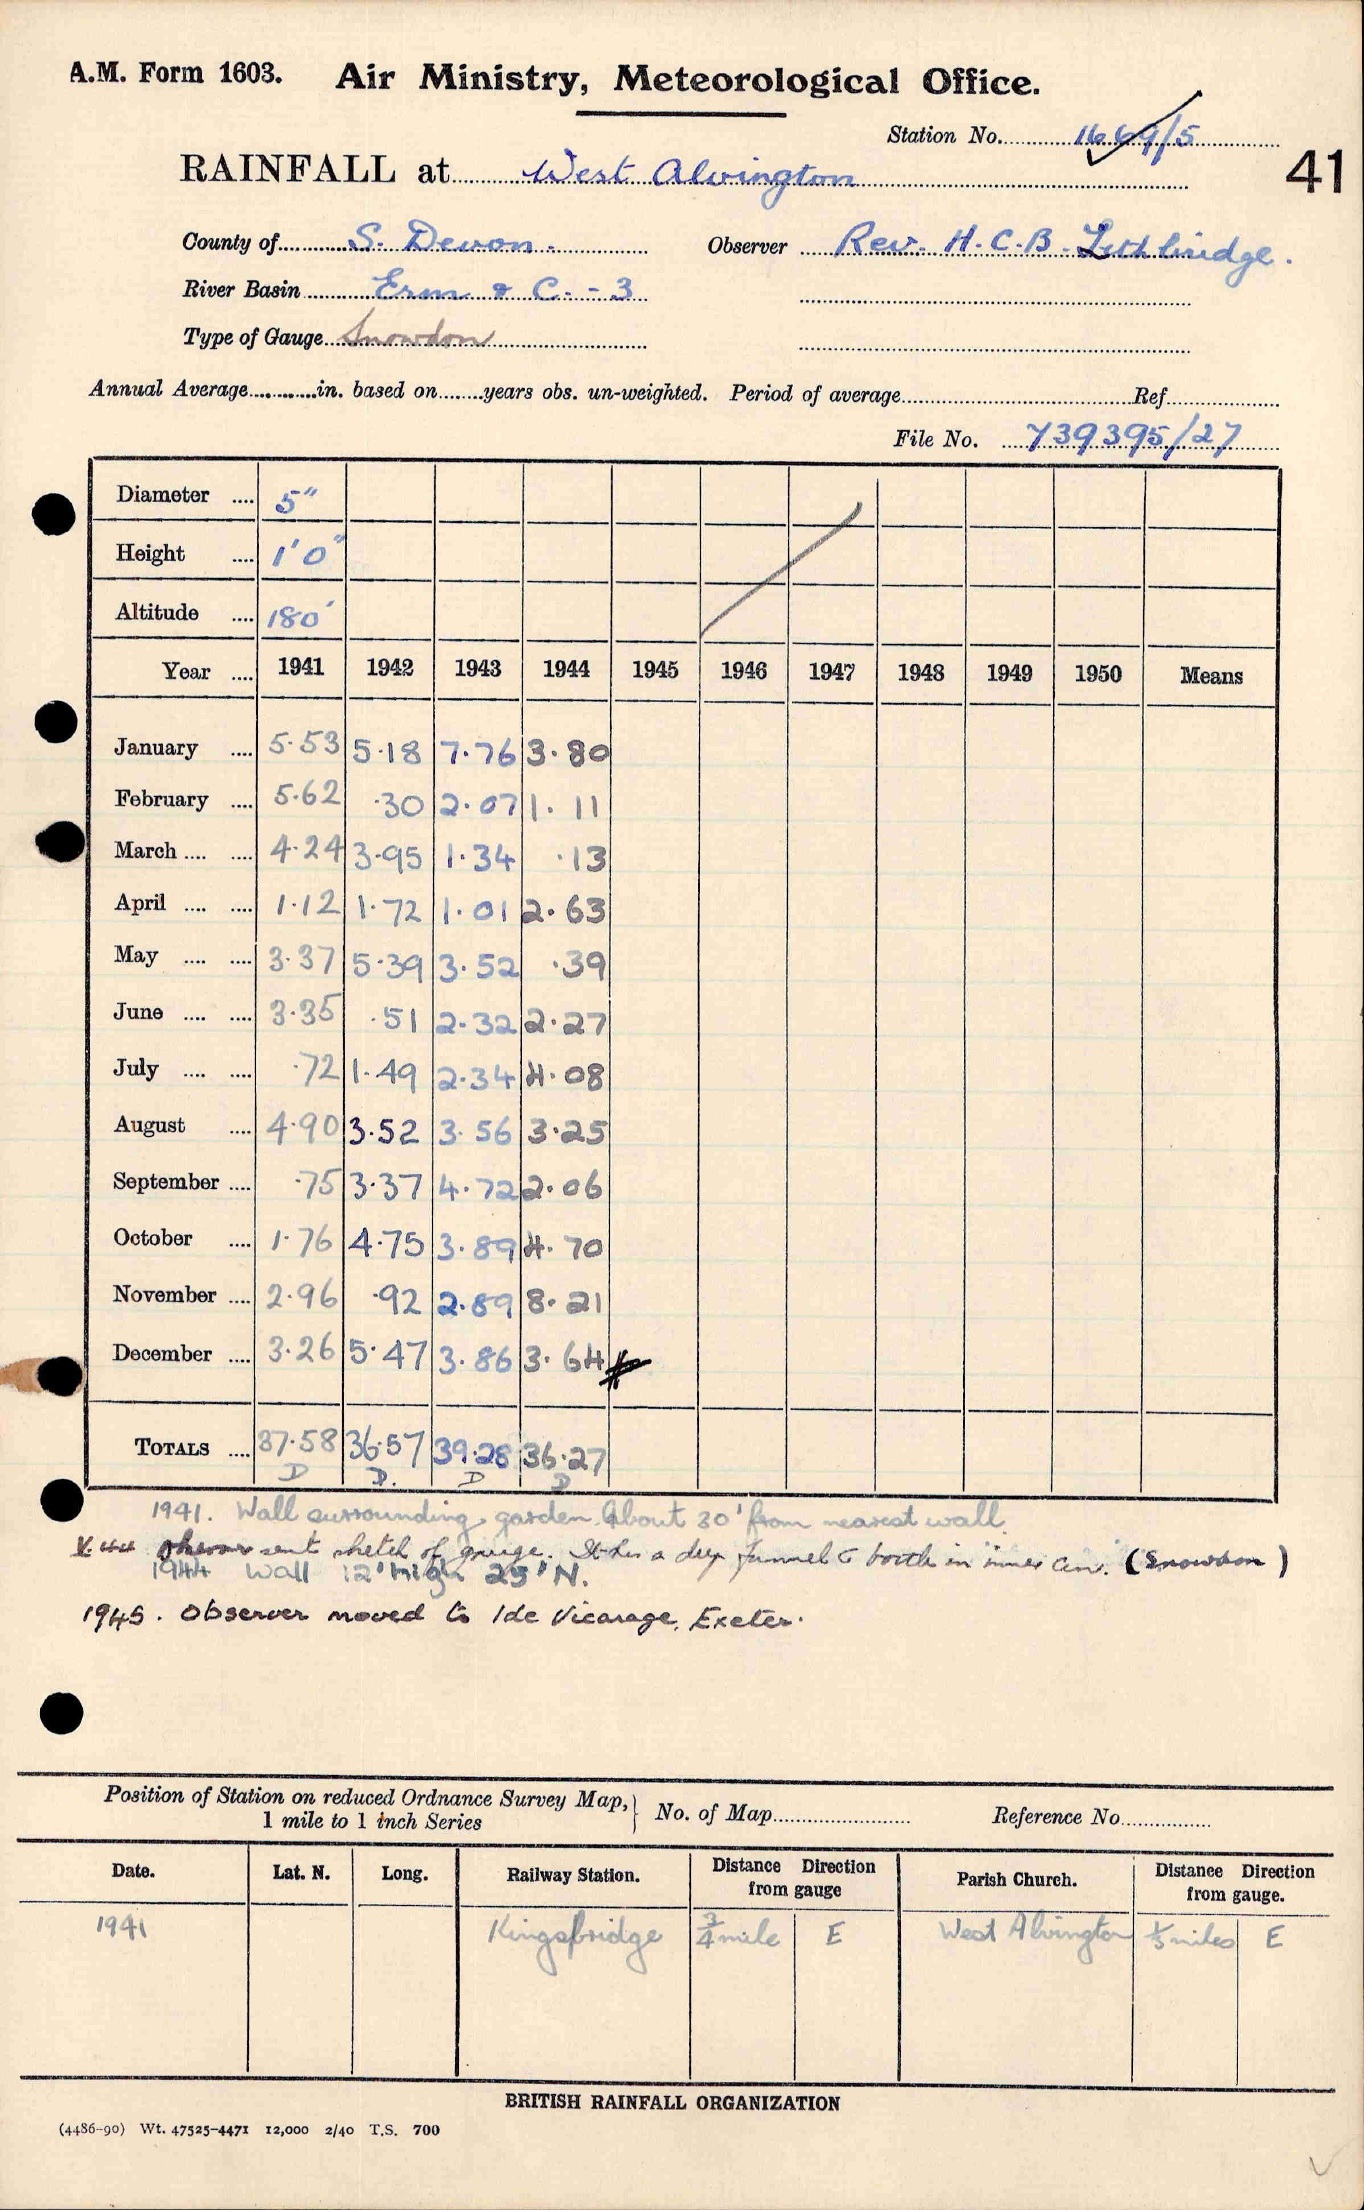 A.M. Form 1603. Air Ministry, Meteorological Office.
Station No. 1669/5
41
RAINFALL at West Alvington
County of S. Devon. Observer Rev. H.C.B. Lethbridge.
River Basin Erm & C. - 3
Type of Gauge Snowdon
Annual Average in. based on years obs. un-weighted. Period of average Ref
File No. 739395/27
Diameter 5"
Height 1' 0"
Altitude 180'
Year 1941 1942 1943 1944 1945 1946 1947 1948 1949 1950 Means
January 5.53 5.18 7.76 3.80
February 5.62 .30 2.07 1.11
March 4.24 3.95 1.34 .13
April 1.12 1.72 1.01 2.63
May 3.37 5.39 3.52 .39
June 3.35 .51 2.32 2.27
July .72 1.49 2.34 4.08
August 4.90 3.52 3.56 3.25
September .75 3.37 4.72 2.06
October 1.76 4.75 3.89 4.70
November 2.96 .92 2.89 8.21
December 3.26 5.47 3.86 3.64
TOTALS 37.58 36.57 39.28 36.27
D D. D D
1941. Wall surrounding garden. About 30' from nearest wall.
V.44 sent sketch of gauge. It has a deep funnel & bottle in inner can. (Snowdon)
1944 Wall 12' high 25' N.
1945. Observer moved to Ide Vicarage, Exeter.
Position of Station on reduced Ordnance Survey Map, 1 mile to 1 inch Series } No. of Map Reference No.
Date. Lat. N. Long. Railway Station. Distance Direction from gauge Parish Church. Distance Direction from gauge.
1941 Kingsbridge 3/4 mile E West Alvington 1/5 miles E
BRITISH RAINFALL ORGANIZATION
(4486-90) Wt. 47525-4471 12,000 2/40 T.S. 700